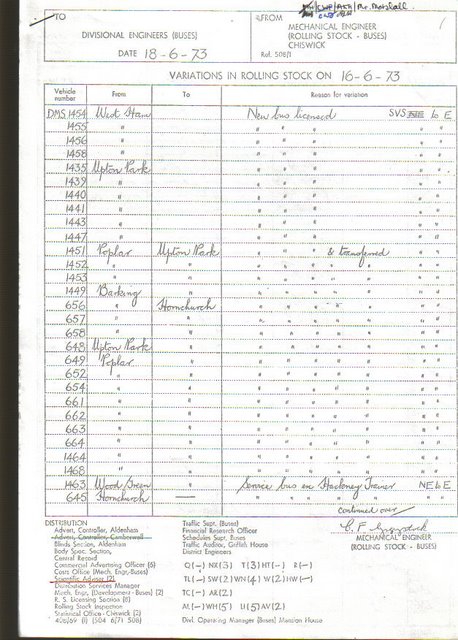 Mr. Marshall
TO
DIVISIONAL ENGINEERS (BUSES)
DATE 18-6-73
FROM
MECHANICAL ENGINEER
(ROLLING STOCK - BUSES)
CHISWICK
Ref. 508/1
VARIATIONS IN ROLLING STOCK ON 16-6-73
Vehicle number From To Reason for variation
DMS 1454 West Ham New bus licensed SVS to E
1455 " " " " " "
1456 " " " " " "
1458 " " " " " "
1435 Upton Park " " " " "
1439 " " " " " "
1440 " " " " " "
1441 " " " " " "
1443 " " " " " "
1447 " " " " " "
1451 Poplar Upton Park " " " & transferred " "
1452 " " " " " " " " "
1453 " " " " " " " " "
1449 Barking " " " " " " " "
656 " Hornchurch " " " " " " "
657 " " " " " " " " "
658 " " " " " " " " "
648 Upton Park " " " " " " " "
649 Poplar " " " " " " " "
652 " " " " " " " " "
654 " " " " " " " " "
661 " " " " " " " " "
662 " " " " " " " " "
663 " " " " " " " " "
664 " " " " " " " " "
1464 " " " " " " " " "
1468 " " " " " " " " "
1463 Wood Green " Service bus ex Hackney Trainer NE to E
645 Hornchurch — " " " " " " "
continued over
DISTRIBUTION
Advert. Controller, Aldenham
Advert. Controller, Camberwell
Blinds Section, Aldenham
Body Spec. Section,
Central Record
Commercial Advertising Officer (6)
Costs Office (Mech. Engr-Buses)
Scientific Adviser (2)
Distribution Services Manager
Mech. Engr. (Development - Buses) (2)
R. S. Licensing Section (6)
Rolling Stock Inspection
Statistical Office - Chiswick (2)
408/69 (I) (504 6/71 508)
Traffic Supt. (Buses)
Financial Research Officer
Schedules Supt. Buses
Traffic Auditor, Griffith House
District Engineers
Q (-) NX (3) T (3) HT (-) R (-)
TL (-) SW (2) WN (4) W (2) HW (-)
TC (-) AR (2)
M (-) WH (5) U (5) AV (2)
Divl. Operating Manager (Buses) Mansion House
MECHANICAL ENGINEER
(ROLLING STOCK - BUSES)